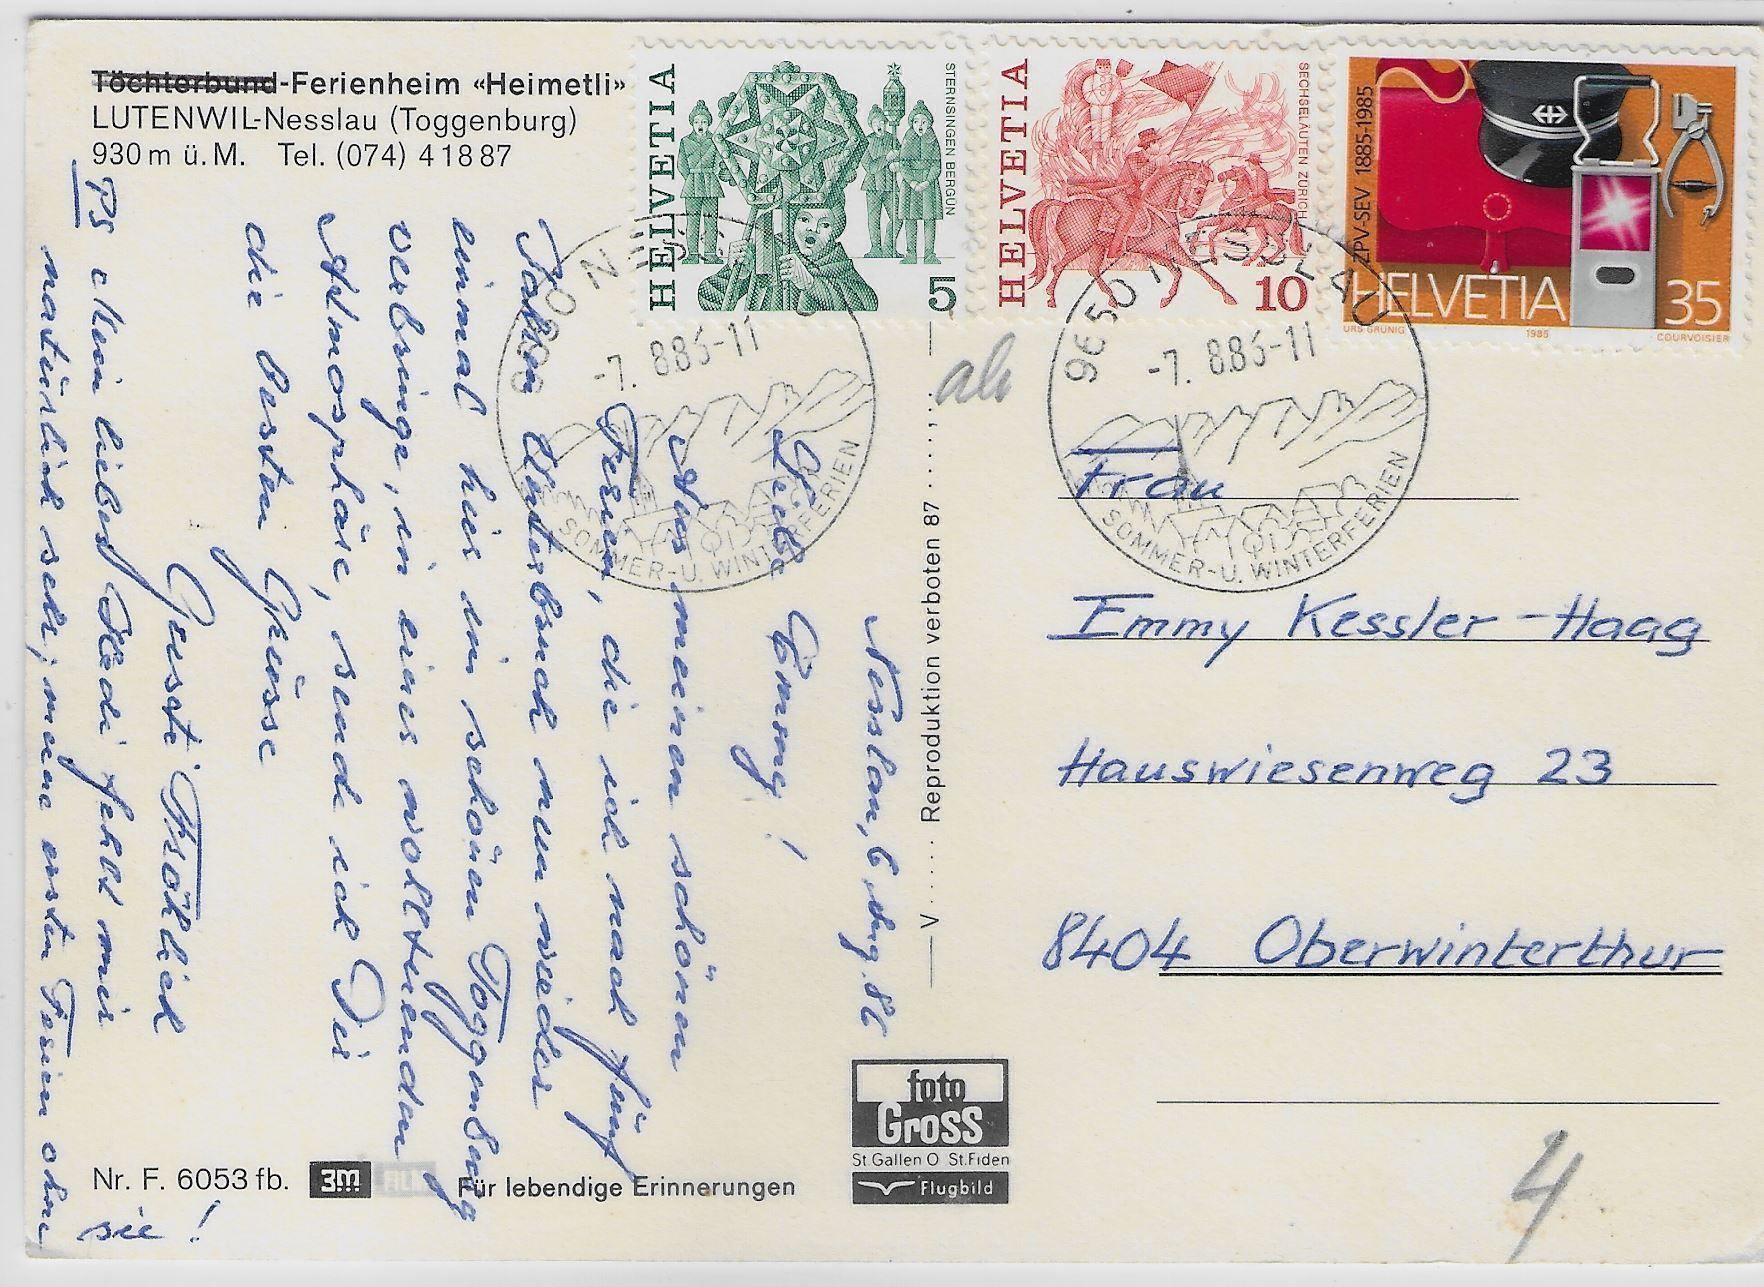 Töchterbund-Ferienheim «Heimetli»
LUTENWIL-Nesslau (Toggenburg)
930 m ü. M. Tel. (074) 4 18 87
HELVETIA
STERNSINGEN BERGÜN
5
HELVETIA
SECHSELÄUTEN ZÜRICH
10
ZPV-SEV 1885-1985
HELVETIA 35
URS GRÜNIG 1985 COURVOISIER
9650 NESSLAU
-7. 8.86-11
SOMMER-U. WINTERFERIEN
9650 NESSLAU
-7. 8.86-11
SOMMER-U. WINTERFERIEN
Nesslau, 6. Aug. 86
Liebe Emmy!
Aus meinen schönen
Ferien, die ich nach fünf
Jahren Unterbruch nun wieder
einmal hier im schönen Toggenburg
verbringe, in einer wolltuenden
Atmosphäre, sende ich Dir
die besten Grüsse
Gersti Fröhlich
PS Mein liebes Hedi fehlt mir
natürlich sehr; meine ersten Ferien ohne
sie!
V ..... Reproduktion verboten 87 .....,...
Frau
Emmy Kessler-Haag
Hauswiesenweg 23
8404 Oberwinterthur
foto
Gross
St. Gallen O St. Fiden
Flugbild
Nr. F. 6053 fb. 3M FILM Für lebendige Erinnerungen
4